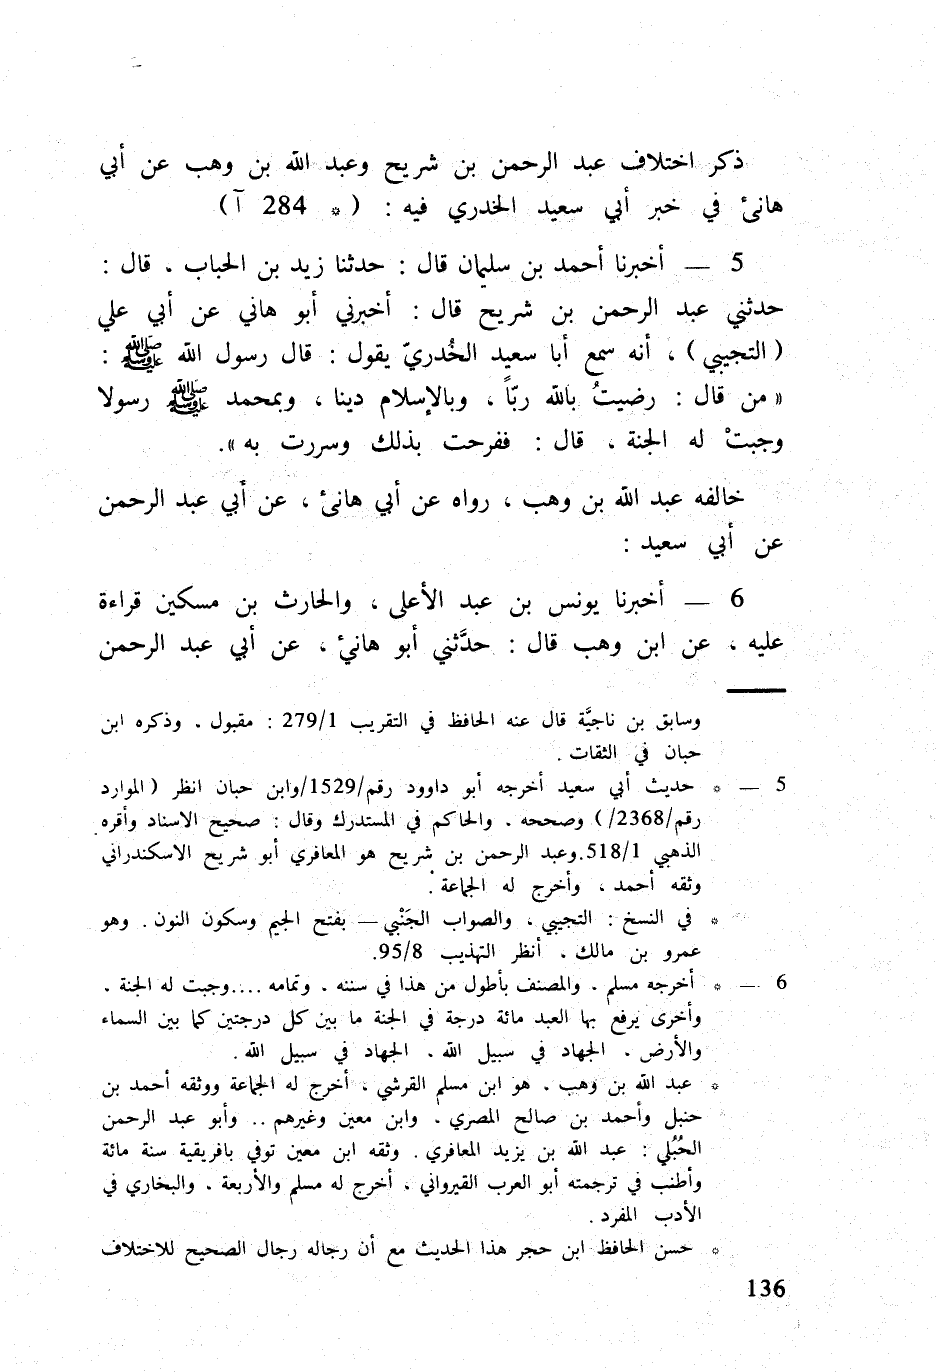 ذكر اختلاف عبد الرحمن بن شريح وعبد الله بن وهب عن أبي
هانئ في خبر أبي سعيد الخدري فيه : ( * 284 آ )
5 — أخبرنا أحمد بن سليمان قال : حدثنا زيد بن الحباب ، قال :
حدثني عبد الرحمن بن شريح قال : أخبرني أبو هاني عن أبي علي
( التجيبي ) ، أنه سمع أبا سعيد الخُدريّ يقول : قال رسول الله ﷺ :
« من قال : رضيتُ بالله ربّاً ، وبالإسلام دينا ، وبمحمد ﷺ رسولا
وجبتْ له الجنة ، قال : ففرحت بذلك وسررت به ».
خالفه عبد الله بن وهب ، رواه عن أبي هانئ ، عن أبي عبد الرحمن
عن أبي سعيد :
6 — أخبرنا يونس بن عبد الأعلى ، والحارث بن مسكين قراءة
عليه ، عن ابن وهب قال : حدَّثني أبو هانئ ، عن أبي عبد الرحمن
وسابق بن ناجيَّة قال عنه الحافظ في التقريب 279/1 : مقبول . وذكره ابن
حبان في الثقات .
5 — * حديث أبي سعيد أخرجه أبو داوود رقم/1529/وابن حبان انظر ( الموارد
رقم/2368/ ) وصححه . والحاكم في المستدرك وقال : صحيح الاسناد وأقره
الذهبي 518/1.وعبد الرحمن بن شريح هو المعافري أبو شريح الاسكندراني
وثقه أحمد ، وأخرج له الجماعة .
* في النسخ : التجيبي ، والصواب الجَنْبي — بفتح الجيم وسكون النون . وهو
عمرو بن مالك . أنظر التهذيب 95/8.
6 — * أخرجه مسلم . والمصنف بأطول من هذا في سننه . وتمامه ....وجبت له الجنة .
وأخرى يرفع بها العبد مائة درجة في الجنة ما بين كل درجتين كما بين السماء
والأرض . الجهاد في سبيل الله . الجهاد في سبيل الله .
* عبد الله بن وهب . هو ابن مسلم القرشي ، أخرج له الجماعة ووثقه أحمد بن
حنبل وأحمد بن صالح المصري . وابن معين وغيرهم .. وأبو عبد الرحمن
الحُبُلي : عبد الله بن يزيد المعافري . وثقه ابن معين توفي بافريقية سنة مائة
وأطنب في ترجمته أبو العرب القيرواني ، أخرج له مسلم والأربعة . والبخاري في
الأدب المفرد .
* حسن الحافظ ابن حجر هذا الحديث مع أن رجاله رجال الصحيح للاختلاف
136